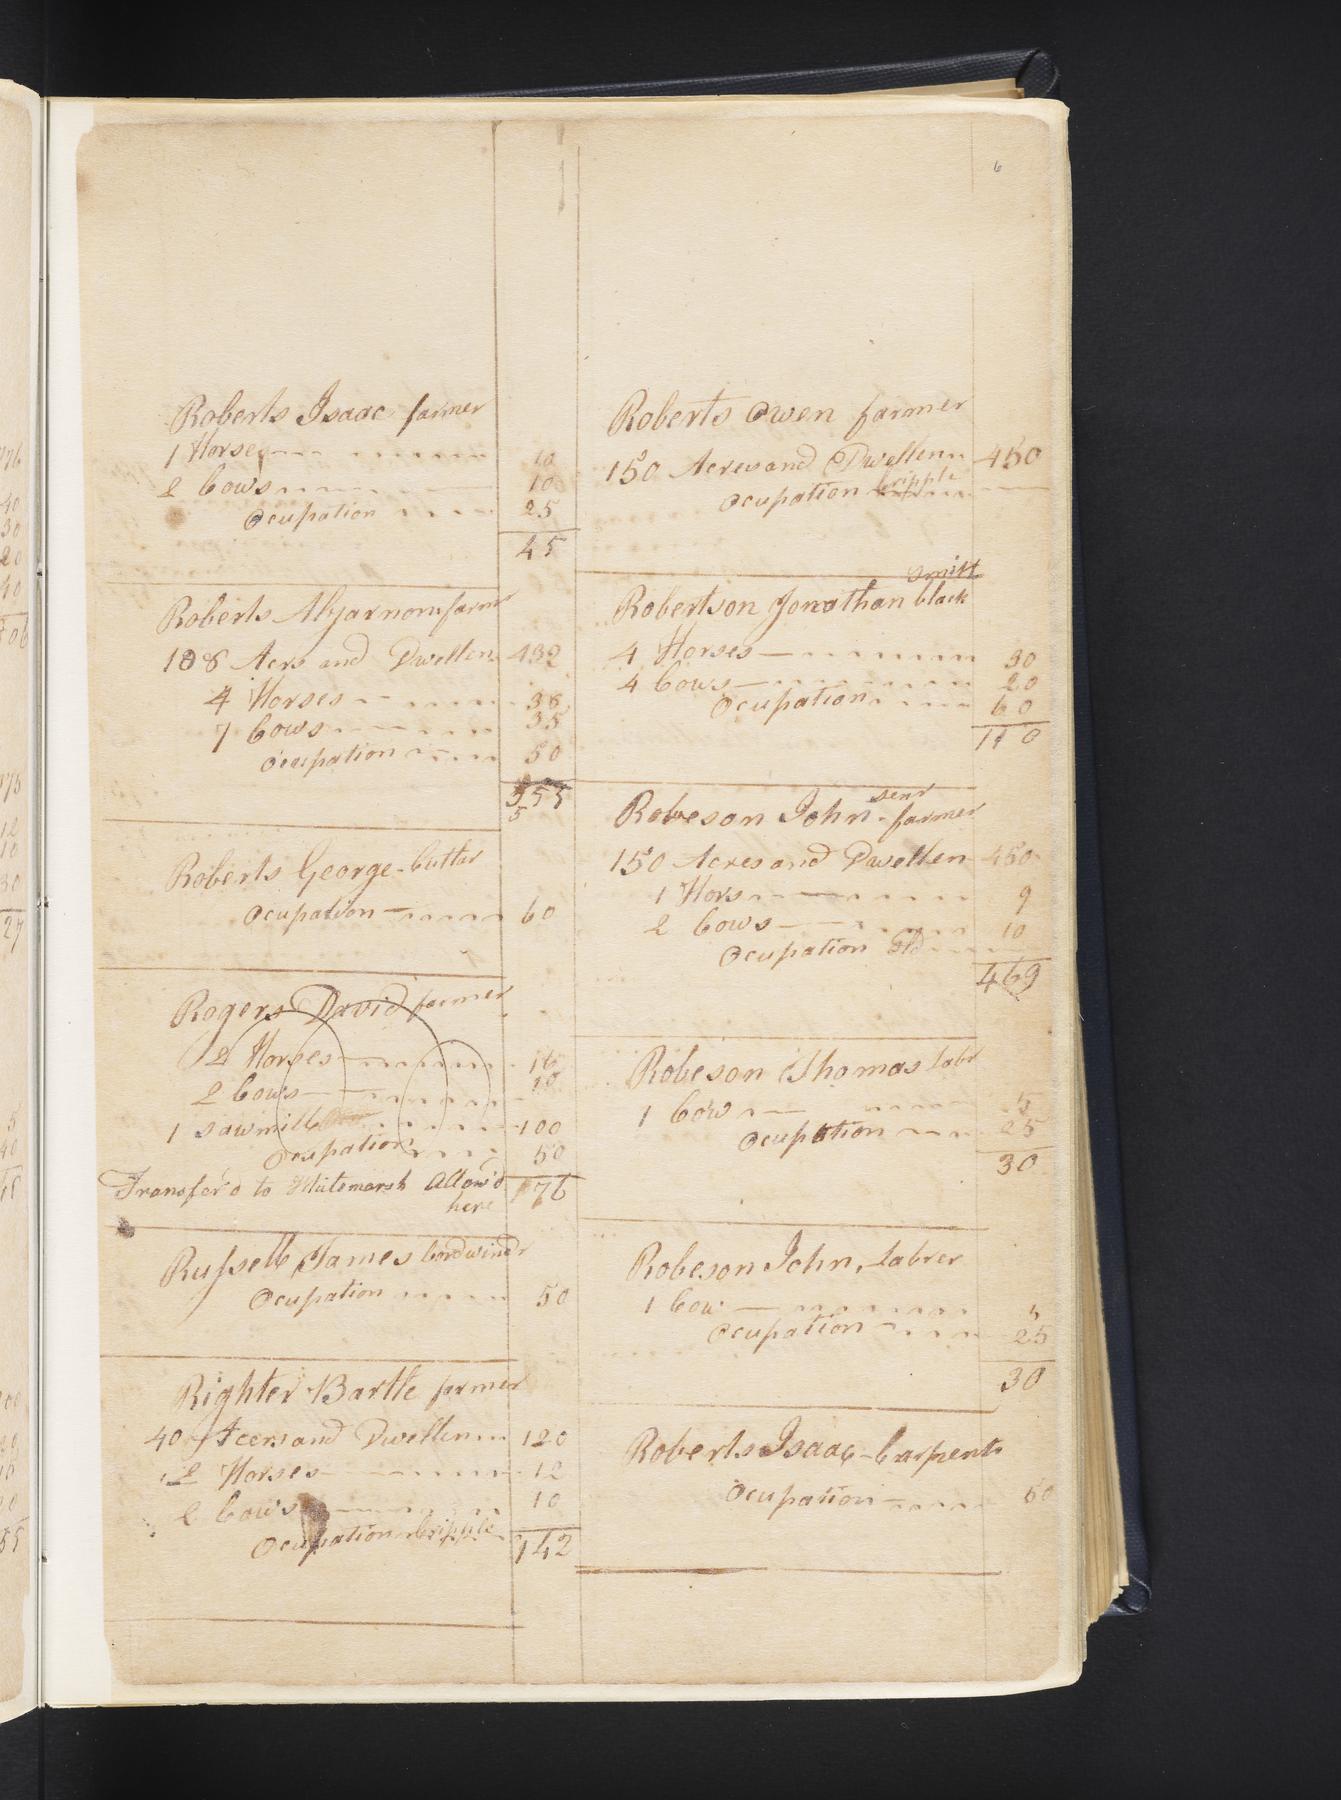 6
Roberts Isaac farmer
1 Horse 10
2 Cows 10
Ocupation 25
45
Roberts Algarnom farmr
108 Acrs and Dwellen 432
4 Horses 38
7 Cows 35
Ocupation 50
555
5
Roberts George Cuttar
Ocupation 60
Rogers David farmer
2 Horses 16
2 Cows 10
1 sawmill 100
Ocupation 50
Transfer'd to Whitemarsh Allow'd 176
here
Russell James Cordwindr
Ocupation 50
Righter Bartle farmer
40 Acers and Dwellen 120
2 Horses 12
2 Cows 10
Ocupation Cripple
142
Roberts Owen farmer
150 Acres and Dwellen 450
Ocupation Cripple
smitt
Robertson Jonathan black
4 Horses 30
4 Cows 20
Ocupation 60
110
senr
Robeson John farmer
150 Acres and Dwellen 450
1 Hors 9
2 Cows 10
Ocupation old
469
Robeson Thomas labr
1 Cow 5
Ocupation 25
30
Robeson John, labrer
1 Cow 5
Ocupation 25
30
Roberts Isaac Carpentr
Ocupation 50
176
40
30
20
40
306
175
12
10
30
27
5
40
55